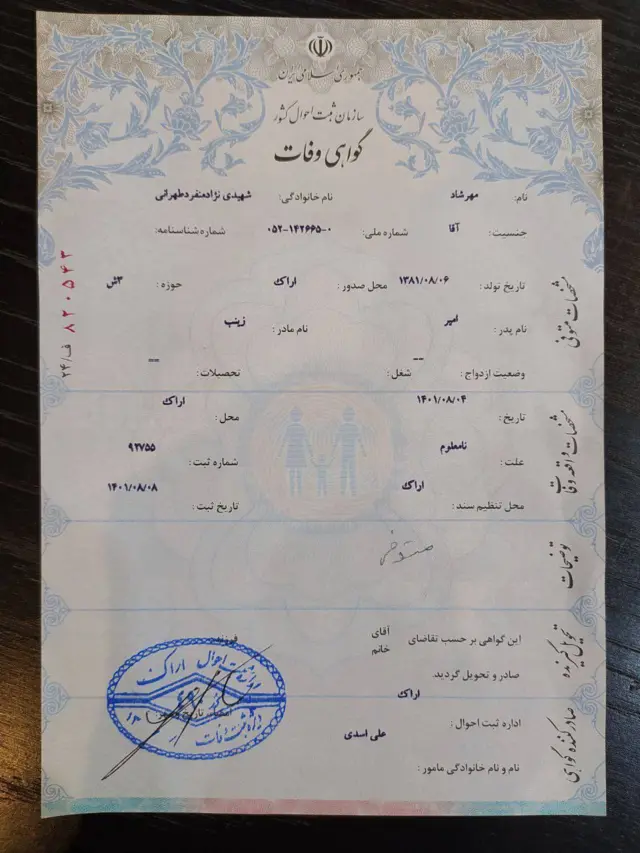 جمهوری اسلامی ایران
سازمان ثبت احوال کشور
گواهی وفات
نام: مهرشاد نام خانوادگی: شهیدی نژادمنفردطهرانی
جنسیت: آقا شماره ملی: ۰۵۲-۱۴۲۶۶۵-۰ شماره شناسنامه:
تاریخ تولد: ۱۳۸۱/۰۸/۰۶ محل صدور: اراک حوزه: ۳ش
نام پدر: امیر نام مادر: زینب
وضعیت ازدواج: شغل: -- تحصیلات: --
مشخصات متوفی
تاریخ: ۱۴۰۱/۰۸/۰۴ محل: اراک
علت: نامعلوم شماره ثبت: ۹۲۷۵۵
محل تنظیم سند: اراک تاریخ ثبت: ۱۴۰۱/۰۸/۰۸
مشخصات واقعه وفات
توضیحات
این گواهی بر حسب تقاضای آقای خانم فرزند
صادر و تحویل گردید.
تحویل گیرنده
اداره ثبت احوال: اراک
نام و نام خانوادگی مامور: علی اسدی
صادرکننده گواهی
ثبت احوال اراک
ف/۲۴ ۸۲۰۵۴۳